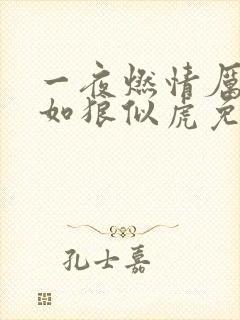 一夜燃情厲
如狼似虎免
孔士嘉